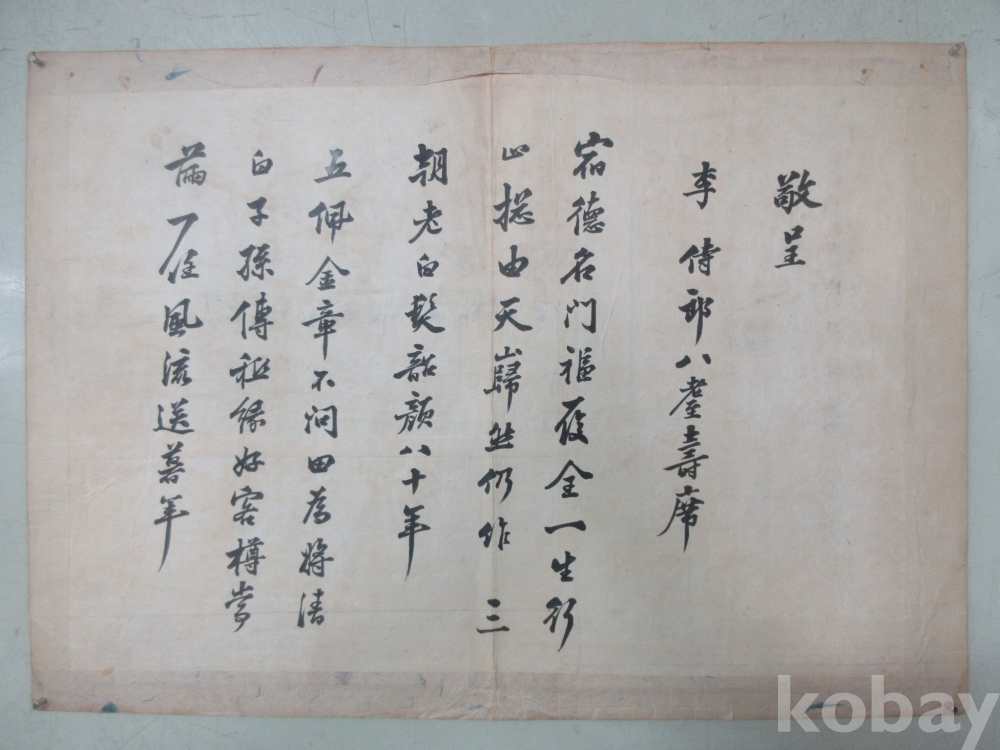 敬呈
李 侍郎八耋壽席
宿德名門福履全一生行
止摠由天巋然仍作 三
朝老白髮韶顔八十年
五佩金章不問田爲將清
白子孫傳秪緣好客樽常
滿一任風流送暮年
kobay